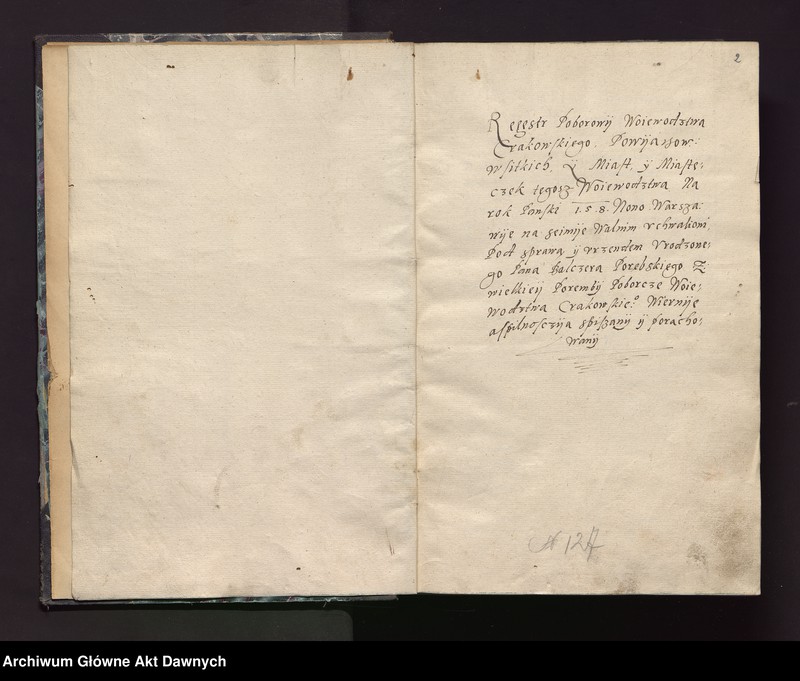 2
Regestr Poborowÿ Woiewodztwa
Crakowskiego. Powijatow:
wsitkich, Ÿ Miast, ÿ Miaste:
czek tegosz Woiewodztwa Na
rok Panski 1.5.8. Nono Warsza:
wije na seimije Walnim vchwalioni
Pod sprawa ÿ vrzendem Vrodzone:
go Pana Balczera Porebskiego Z
wielkieij Porembÿ Poborcze Woie:
wodztwa Crakowskieº Wiernije
aspilnosczija spiszanÿ ÿ poracho:
wanÿ
N 127
Archiwum Główne Akt Dawnych